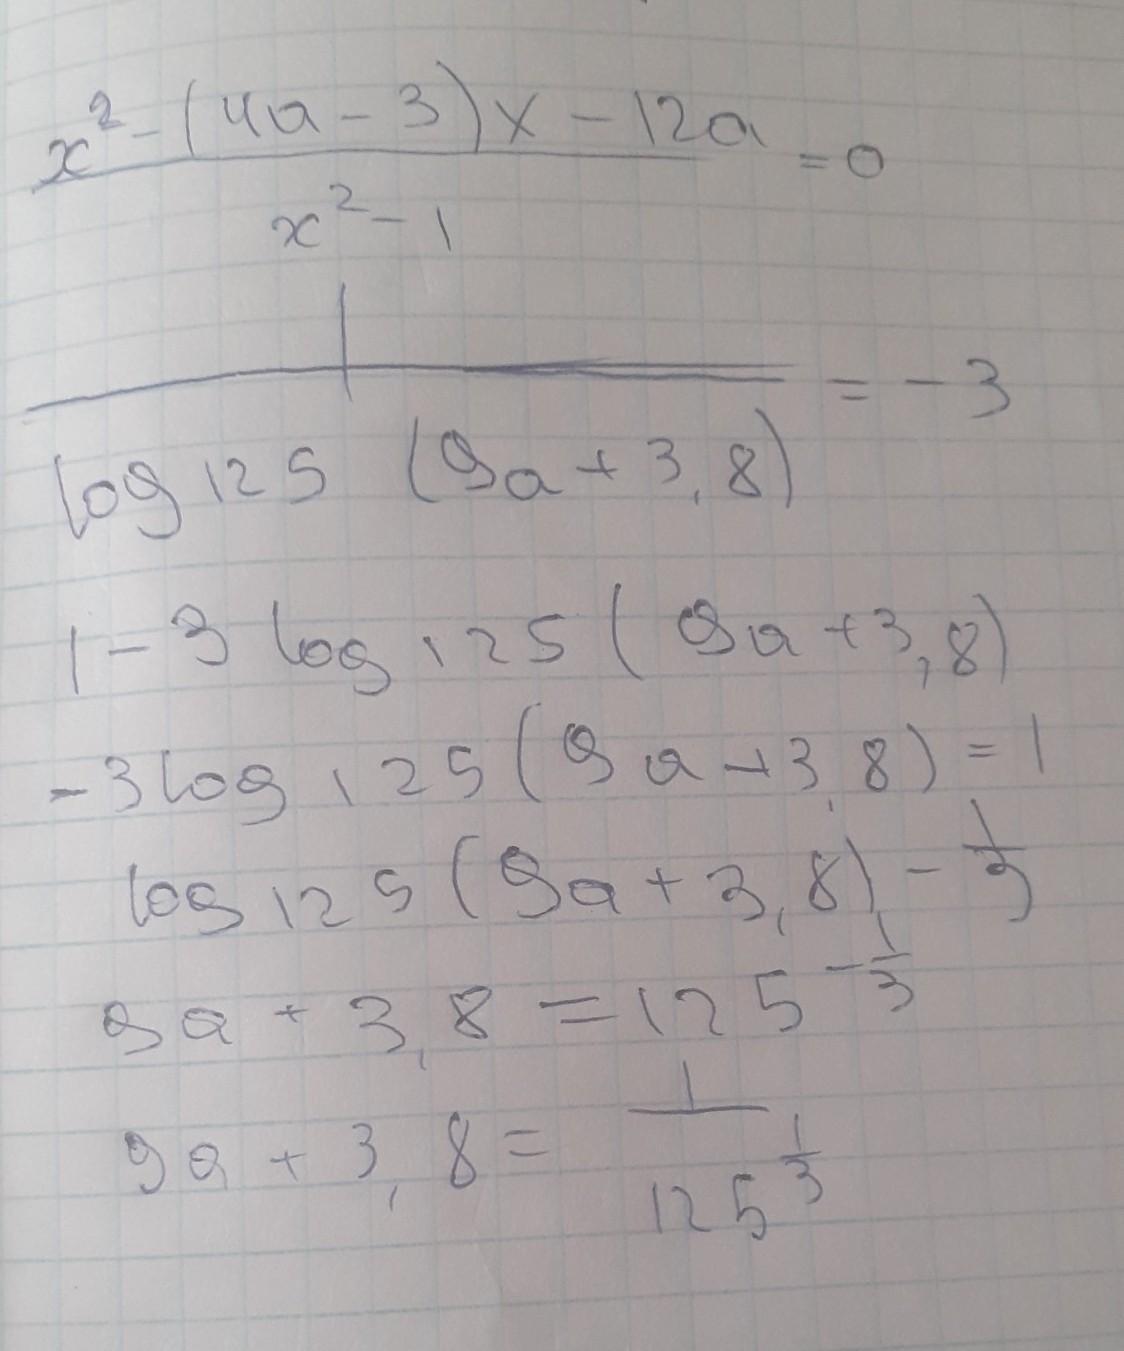 x² - (4a - 3)x - 12a = 0
x² - 1
1 = -3
log 125 (9a + 3,8)
1 - 3 log 125 (9a + 3,8)
-3 log 125 (9a + 3,8) = 1
log 125 (9a + 3,8) - 1/3
9a + 3,8 = 125^(-1/3)
9a + 3,8 = 1
125^(1/3)